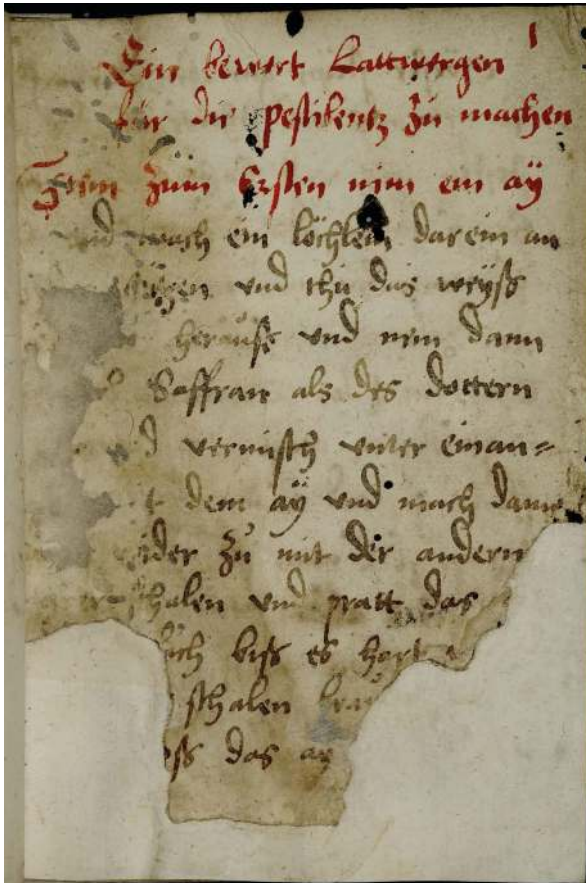 1
Ein bewert Lattwergen
für die pestilentz zu machen
Item zům Ersten nim ein aÿ
vnd mach ein löchlein darein an
vnd thů das weÿß
herauß vnd nem dann
Saffran als des dottern
vermisch vnter einan=
dem aÿ vnd mach dann
zů mit der andern
schalen vnd pratt das
biß es hart
schalen
das aÿ